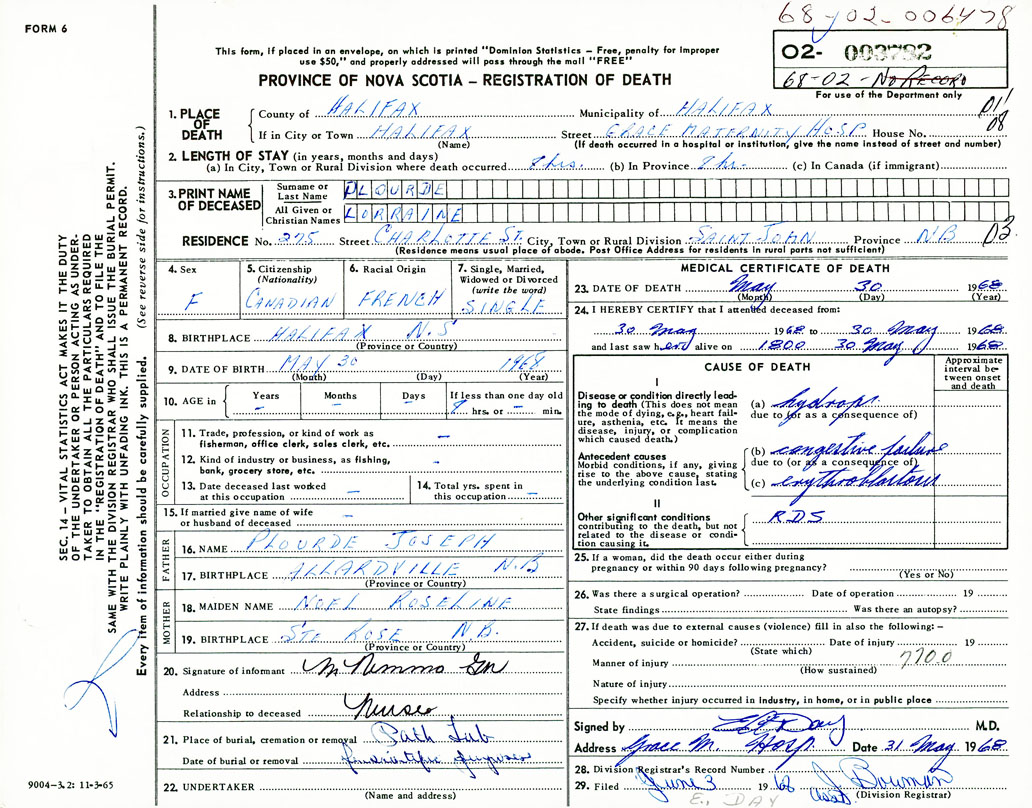 68-02-006478
FORM 6
This form, if placed in an envelope, on which is printed "Dominion Statistics – Free, penalty for improper
use $50," and properly addressed will pass through the mail "FREE"
02- 003792
PROVINCE OF NOVA SCOTIA – REGISTRATION OF DEATH
68-02-No RECORD
For use of the Department only
1. PLACE OF DEATH
County of HALIFAX Municipality of HALIFAX 01
If in City or Town HALIFAX Street GRACE MATERNITY HOSP House No. 08
(Name) (If death occurred in a hospital or institution, give the name instead of street and number)
2. LENGTH OF STAY (in years, months and days)
(a) In City, Town or Rural Division where death occurred 8 hrs. (b) In Province 8 hr. (c) In Canada (if immigrant)
3. PRINT NAME OF DECEASED
Surname or Last Name PLOURDE
All Given or Christian Names LORRAINE
RESIDENCE No. 275 Street CHARLOTTE ST. City, Town or Rural Division SAINT JOHN Province NB 03
(Residence means usual place of abode. Post Office Address for residents in rural parts not sufficient)
4. Sex
F
5. Citizenship
(Nationality)
CANADIAN
6. Racial Origin
FRENCH
7. Single, Married,
Widowed or Divorced
(write the word)
SINGLE
8. BIRTHPLACE HALIFAX N.S
(Province or Country)
9. DATE OF BIRTH MAY 30 1968
(Month) (Day) (Year)
10. AGE in
Years Months Days If less than one day old
– – – 8 hrs. or – min.
OCCUPATION
11. Trade, profession, or kind of work as
fisherman, office clerk, sales clerk, etc. –
12. Kind of industry or business, as fishing,
bank, grocery store, etc. –
13. Date deceased last worked
at this occupation –
14. Total yrs. spent in
this occupation –
15. If married give name of wife
or husband of deceased –
FATHER
16. NAME PLOURDE JOSEPH
17. BIRTHPLACE ALLARDVILLE N.B
(Province or Country)
MOTHER
18. MAIDEN NAME NOEL ROSELINE
19. BIRTHPLACE STE ROSE N.B.
(Province or Country)
20. Signature of informant M Nimmo
Address
Relationship to deceased Nurse
21. Place of burial, cremation or removal Path Lab
Date of burial or removal
22. UNDERTAKER
(Name and address)
MEDICAL CERTIFICATE OF DEATH
23. DATE OF DEATH May 30 1968
(Month) (Day) (Year)
24. I HEREBY CERTIFY that I attented deceased from:
30 May 1968 to 30 May 1968
and last saw her alive on 1800 30 May 1968
CAUSE OF DEATH
Approximate interval between onset and death
I
Disease or condition directly leading to death (This does not mean the mode of dying, e.g., heart failure, asthenia, etc. It means the disease, injury, or complication which caused death.)
(a) hydrops
due to (or as a consequence of)
Antecedent causes
Morbid conditions, if any, giving rise to the above cause, stating the underlying condition last.
(b) congestive failure
due to (or as a consequence of)
(c) erythroblastosis
II
Other significant conditions
contributing to the death, but not related to the disease or condition causing it.
RDS
25. If a woman, did the death occur either during
pregnancy or within 90 days following pregnancy?
(Yes or No)
26. Was there a surgical operation? Date of operation 19
State findings Was there an autopsy?
27. If death was due to external causes (violence) fill in also the following: –
Accident, suicide or homicide? Date of injury 19
(State which)
Manner of injury 7700
(How sustained)
Nature of injury
Specify whether injury occurred in industry, in home, or in public place
Signed by E C Day M.D.
Address Grace M. Hosp. Date 31 May 1968
28. Division Registrar's Record Number
29. Filed June 3 1968 J Bowman
asst (Division Registrar)
E. DAY
SEC. 14 – VITAL STATISTICS ACT MAKES IT THE DUTY
OF THE UNDERTAKER OR PERSON ACTING AS UNDER-
TAKER TO OBTAIN ALL THE PARTICULARS REQUIRED
IN THE "REGISTRATION OF DEATH" AND TO FILE THE
SAME WITH THE DIVISION REGISTRAR WHO SHALL ISSUE THE BURIAL PERMIT.
WRITE PLAINLY WITH UNFADING INK. THIS IS A PERMANENT RECORD.
Every item of information should be carefully supplied. (See reverse side for instructions.)
9004-3.2: 11-3-65